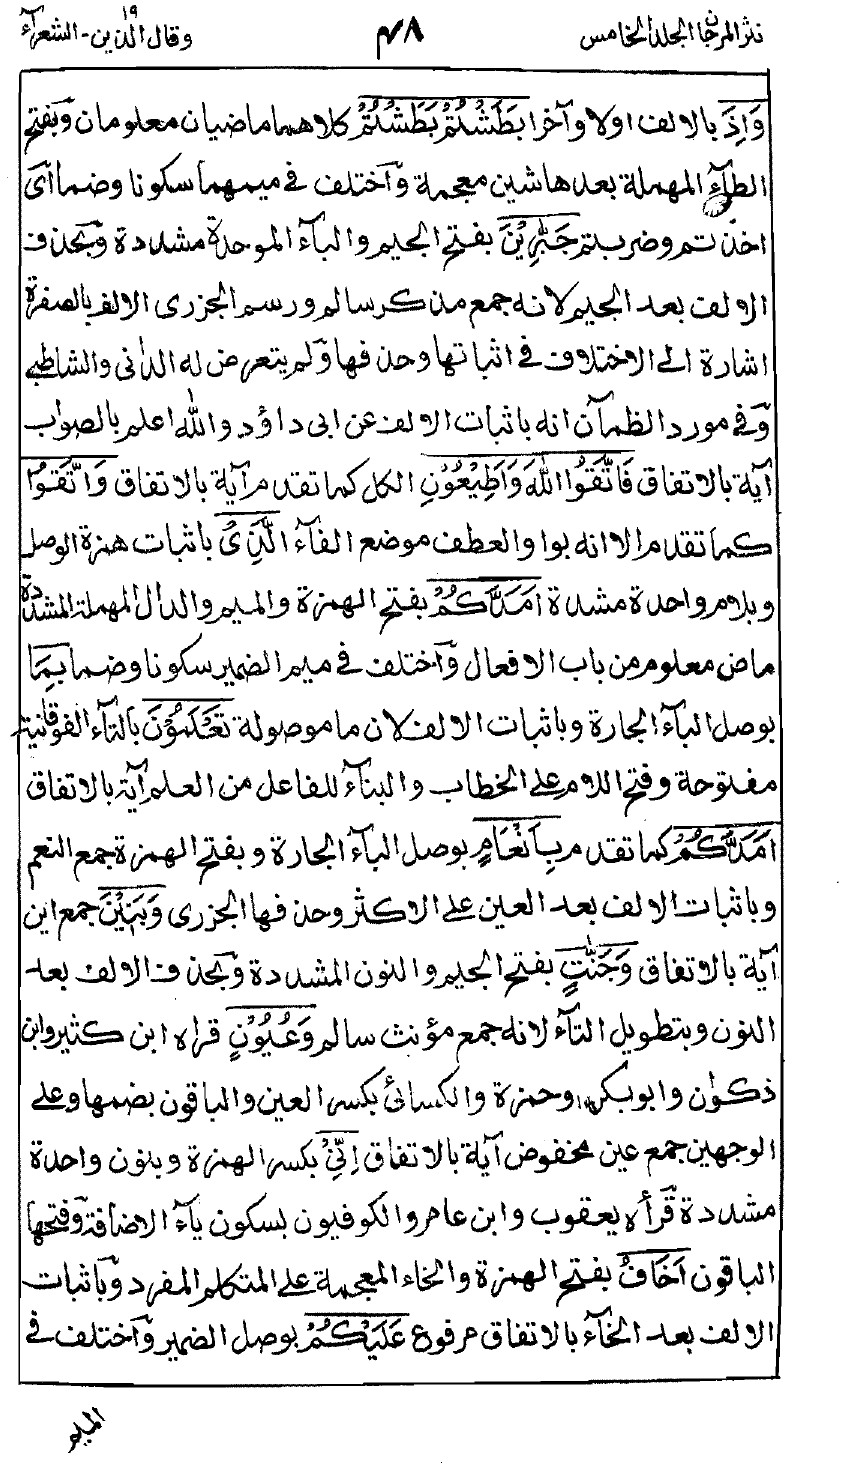 نثر المرجان الجلد الخامس ٤٨ وقال الذين ١٩ - الشعرآء
وَاِذَا بالالف اولا وآخرا بَطَشْتُمْ بَطَشْتُمْ كلاهما ماضيان معلومان وبفتح
الطآء المهملة بعدها شين معجمة وٓاختلف فى ميمهما سكونا وضما اى
اخذتم وضربتم جَبّٰرِيْنَ بفتح الجيم والبآء الموحدة مشددة وبحذف
الالف بعد الجيم لانه جمع مذكر سالم ورسم الجزرى الالف بالصفرة
اشارة الى الاختلاف فى اثباتها وحذفها ولم يتعرض له الدانى والشاطبى
وٓفى مورد الظمآن انه باثبات الالف عن ابى داؤد والله اعلم بالصواب
آية بالاتفاق فَاتَّقُوا اللّٰهَ وَاَطِيْعُوْنِ الكل كما تقدم آية بالاتفاق وَاتَّقُوْا
كما تقدم الا انه بواو العطف موضع الفآء الَّذِىْ باثبات همزة الوصل
وبلام واحدة مشددة اَمَدَّكُمْ بفتح الهمزة والميم والدال المهملة المشددة
ماض معلوم من باب الافعال وٓاختلف فى ميم الضمير سكونا وضما بِمَا
بوصل البآء الجارة وباثبات الالف لان ما موصولة تَعْلَمُوْنَ بالتآء الفوقانية
مفتوحة وفتح اللام على الخطاب والبنآء للفاعل من العلم آية بالاتفاق
اَمَدَّكُمْ كما تقدم بِاَنْعَامٍ بوصل البآء الجارة وبفتح الهمزة جمع النعم
وباثبات الالف بعد العين على الاكثر وحذفها الجزرى وَبَنِيْنَ جمع ابن
آية بالاتفاق وَجَنّٰتٍ بفتح الجيم والنون المشددة وبحذف الالف بعد
النون وبتطويل التآء لانه جمع مؤنث سالم وَعُيُوْنٍ قرأه ابن كثير وابن
ذكوان وابوبكر وحمزة والكسائى بكسر العين والباقون بضمها وعلى
الوجهين جمع عين مخفوض آية بالاتفاق اِنِّىْ بكسر الهمزة وبنون واحدة
مشددة قرأه يعقوب وابن عامر والكوفيون بسكون يآء الاضافة وفتحها
الباقون اَخَافُ بفتح الهمزة والخاء المعجمة على المتكلم المفرد وباثبات
الالف بعد الخآء بالاتفاق مرفوع عَلَيْكُمْ بوصل الضمير وٓاختلف فى
الميم